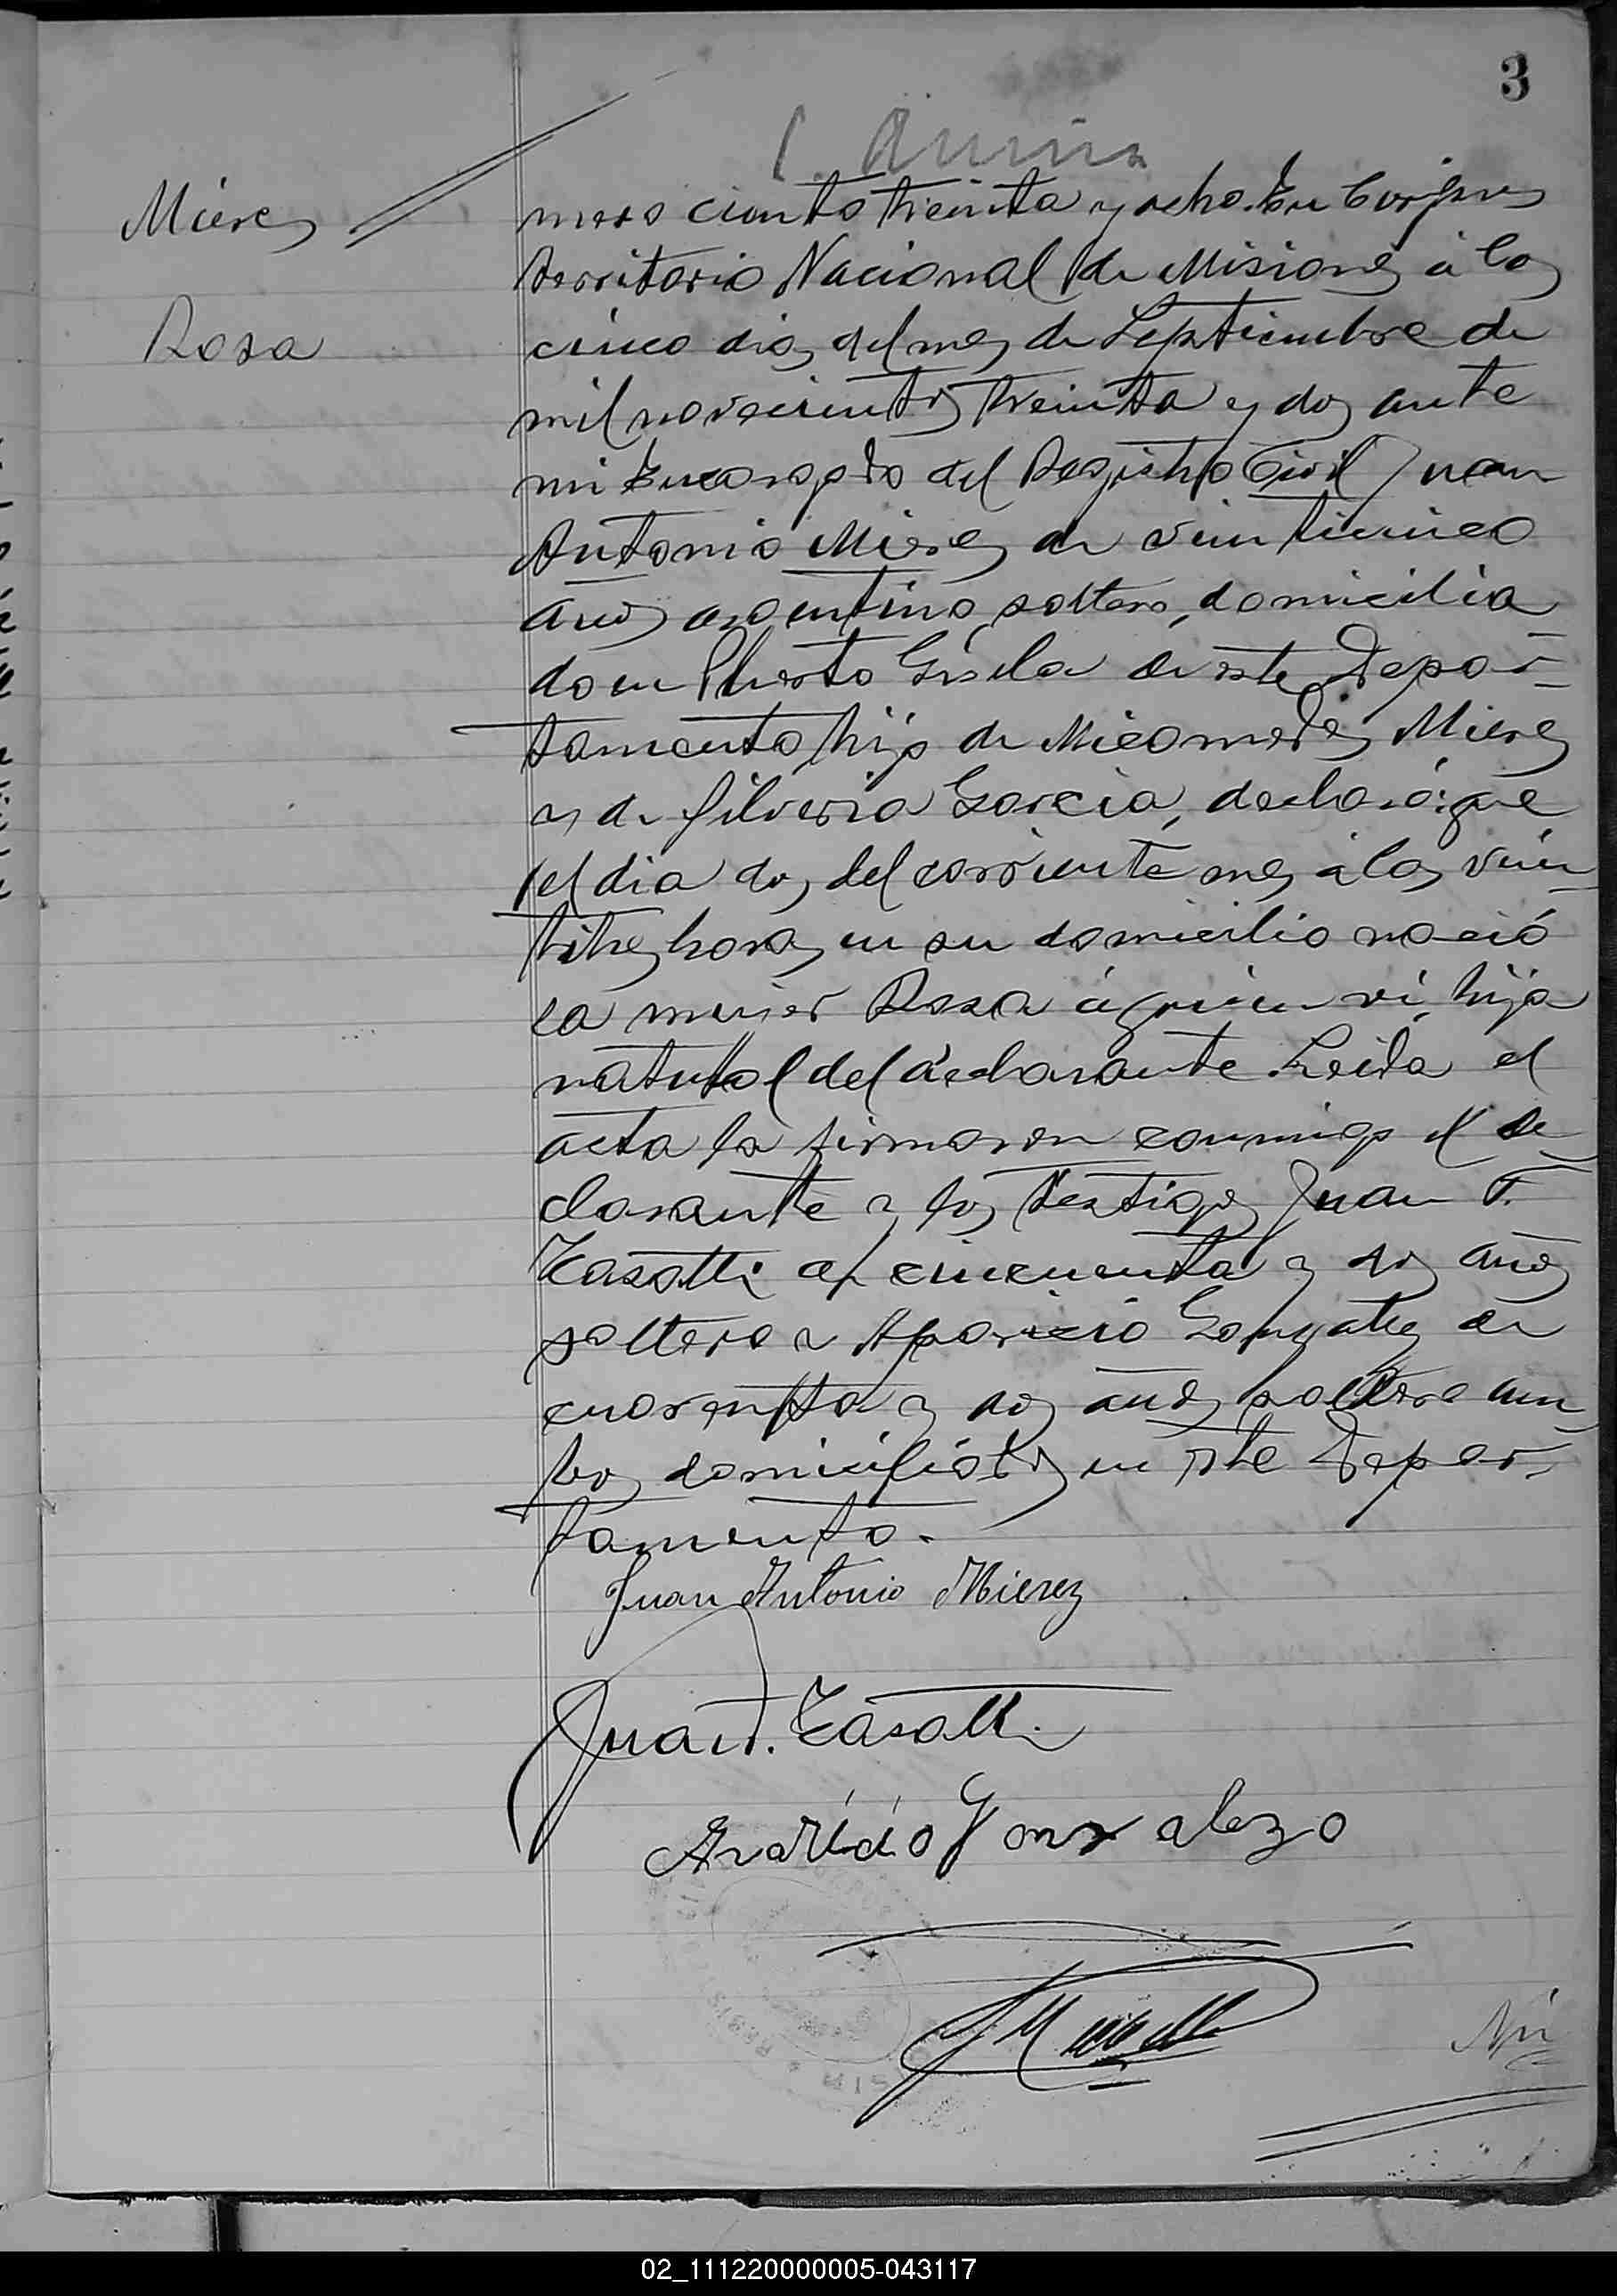 3
Mieres
Rosa
mero ciento treinta y ocho. En Corpus
Territorio Nacional de Misiones á los
cinco dias del mes de Septiembre de
mil novecientos treinta y dos ante
mi Encargado del Registro Civil Juan
Antonio Mieres de veinticinco
años argentino, soltero, domicilia
do en Puerto Gisela de este Depar-
tamento hijo de Nicomedes Mieres
y de Silveria Garcia, declaró: que
el dia dos del corriente mes á las vein-
titres horas en su domicilio nació
la mujer Rosa á quien vi, hija
natural del declarante. Leida el
acta la firmaron conmigo el de-
clarante y los testigos Juan T.
Tasotti de cincuenta y dos años
soltero y Aparicio Gonzalez de
cuarenta y dos años soltero am-
bos domiciliados en este Depar-
tamento.
Juan Antonio Mierez
Juan T. Tasotti
Gonzalezo
Nú
02_111220000005-043117